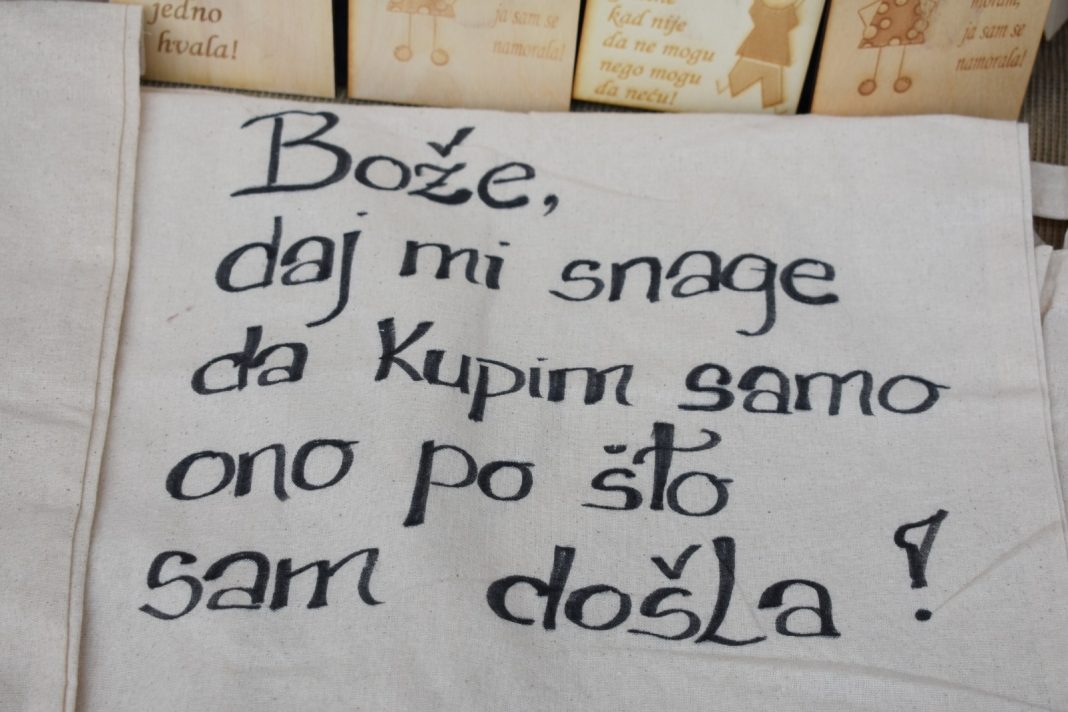 jedno
hvala!
ja sam se
namorala!
kad nije
da ne mogu
nego mogu
da neću!
ja sam se
namorala!
Bože,
daj mi snage
da kupim samo
ono po što
sam došla!